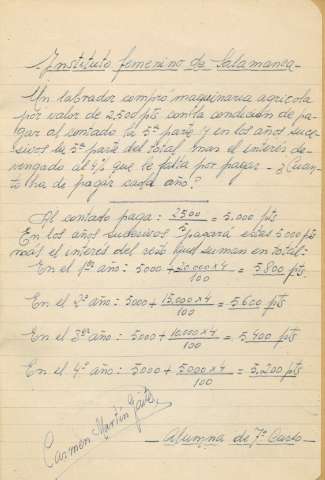 Instituto femenino de Salamanca-
Un labrador compró maquinaria agrícola
por valor de 2,500 pts con la condición de pa-
gar al contado la 5ª parte y en los años suce-
sivos la 5ª parte del total mas el interés de-
vengado al 4% que le falta por pagar - ¿Cuan-
to ha de pagar cada año?
Al contado paga: 2500 = 5.000 pts
En los años sucesivos pagará estas 5.000 pts
más el interés del resto que suman en total:
En el 1er año: 5000 + 20.000 x 4 / 100 = 5.800 pts
En el 2º año: 5000 + 15.000 x 4 / 100 = 5,600 pts
En el 3er año: 5000 + 10.000 x 4 / 100 = 5,400 pts
En el 4º año: 5000 + 5000 x 4 / 100 = 5,200 pts
Carmen Martín Gaite
- Alumna de 7º Curso -